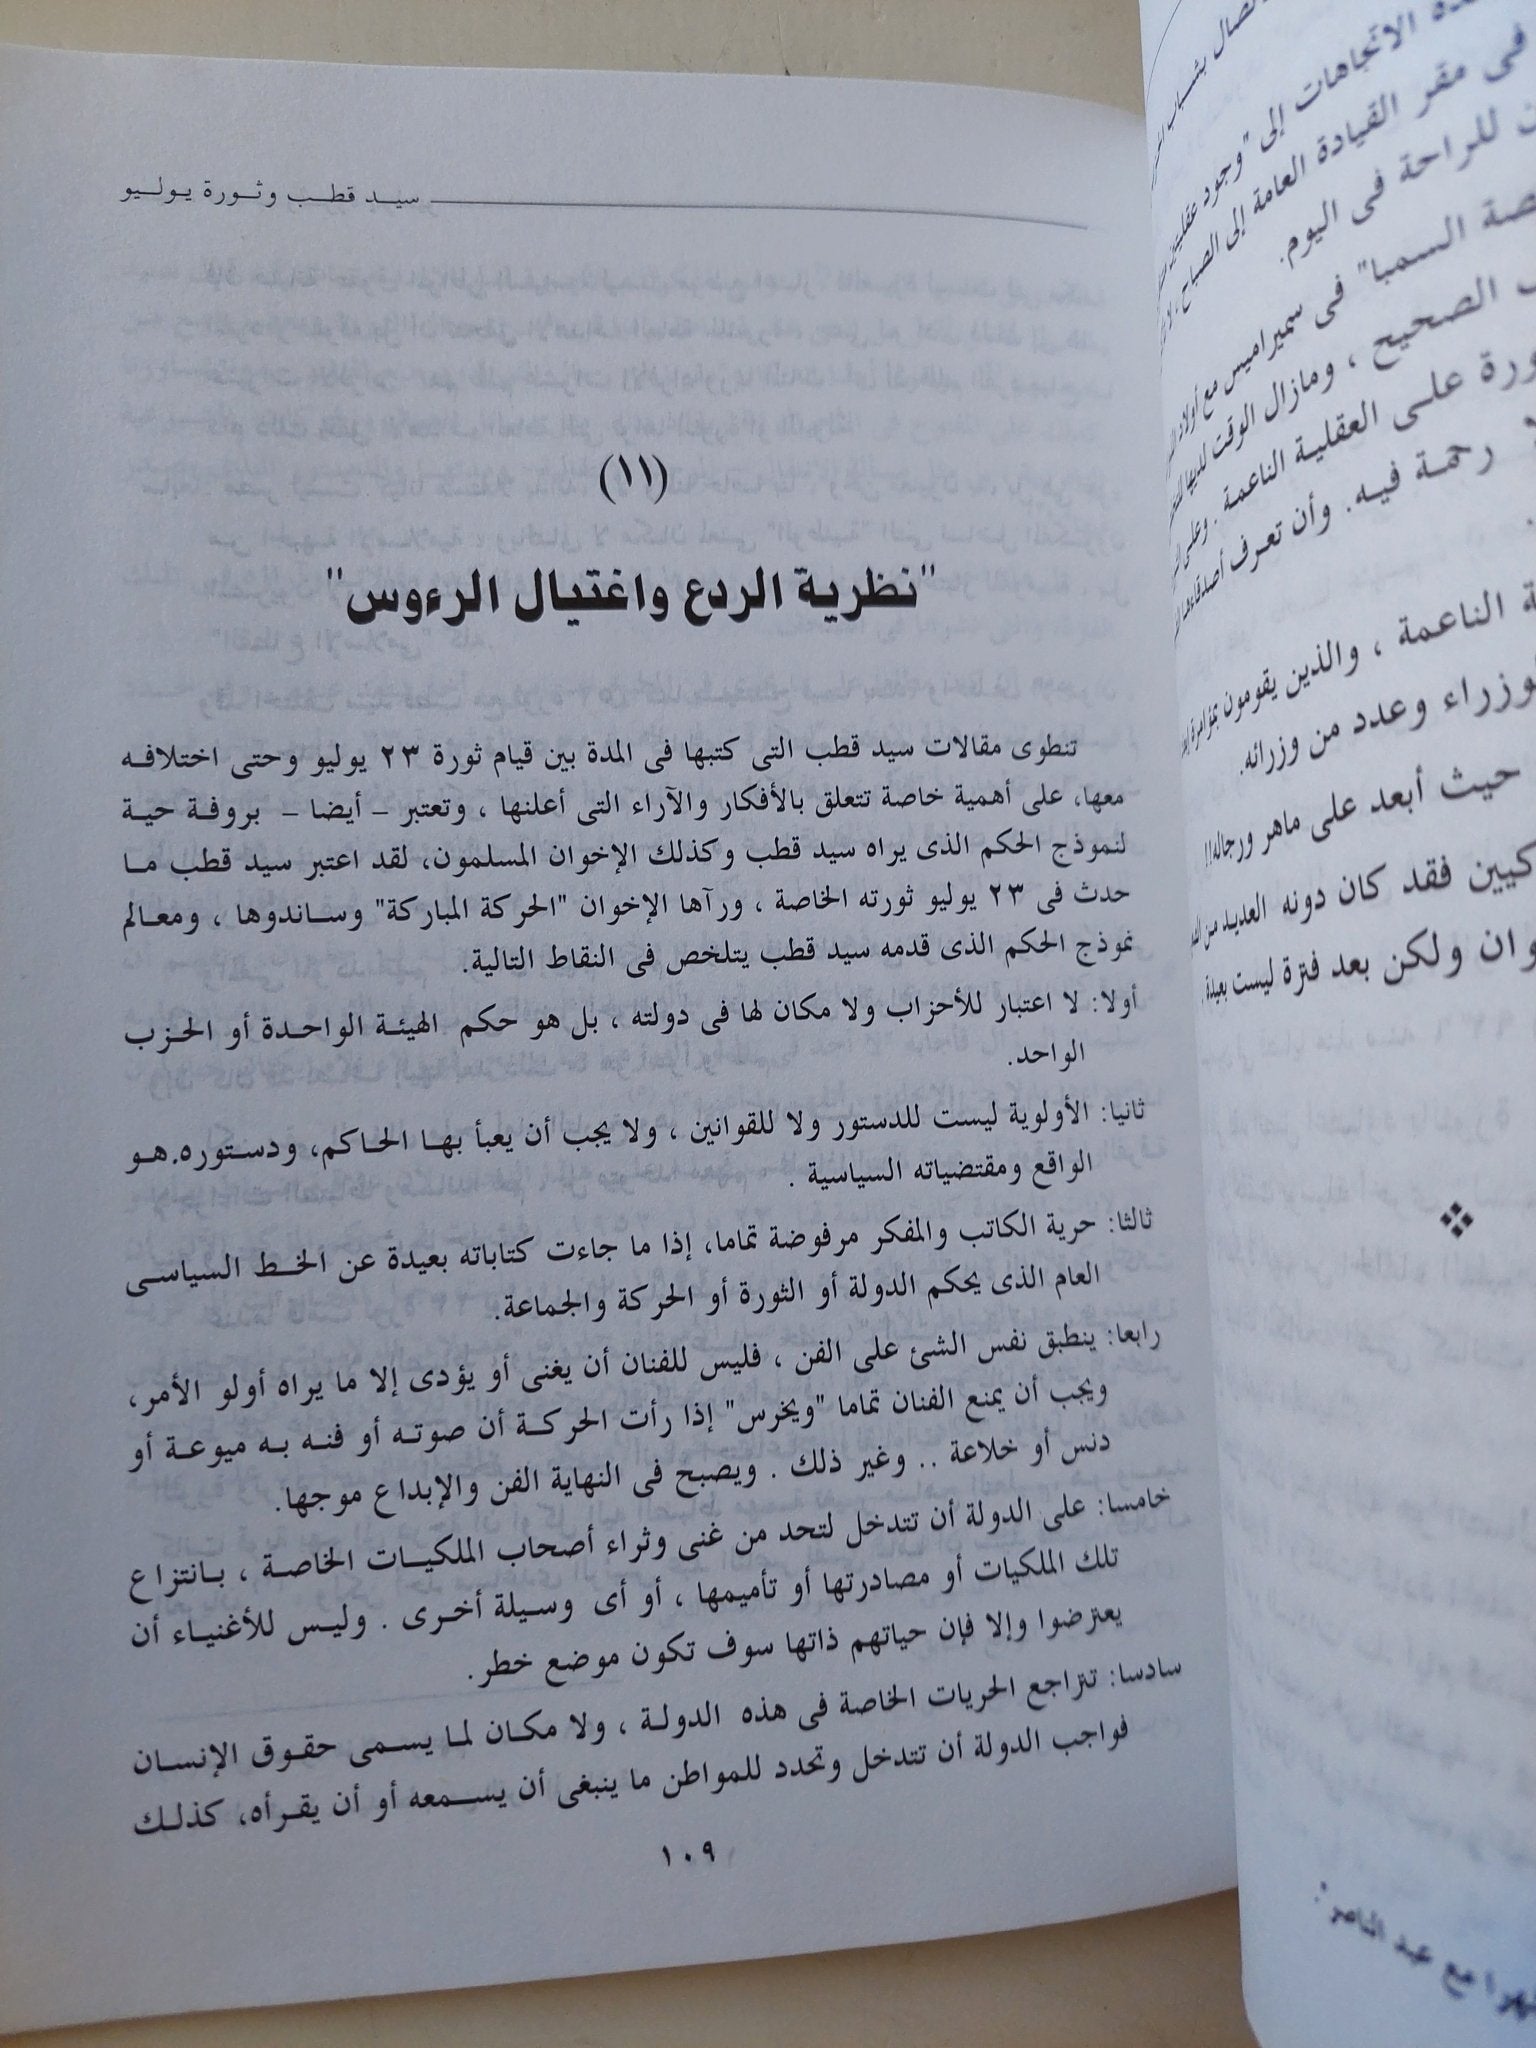 سيد قطب وثورة يوليو
(١١)
"نظرية الردع واغتيال الرءوس"
تنطوى مقالات سيد قطب التى كتبها فى المدة بين قيام ثورة ٢٣ يوليو وحتى اختلافه
معها، على أهمية خاصة تتعلق بالأفكار والآراء التى أعلنها ، وتعتبر – أيضا – بروفة حية
لنموذج الحكم الذى يراه سيد قطب وكذلك الإخوان المسلمون، لقد اعتبر سيد قطب ما
حدث فى ٢٣ يوليو ثورته الخاصة ، ورآها الإخوان "الحركة المباركة" وساندوها ، ومعالم
نموذج الحكم الذى قدمه سيد قطب يتلخص فى النقاط التالية.
أولا: لا اعتبار للأحزاب ولا مكان لها فى دولته ، بل هو حكم الهيئة الواحدة أو الحزب
الواحد.
ثانيا: الأولوية ليست للدستور ولا للقوانين ، ولا يجب أن يعبأ بها الحاكم، ودستوره.هو
الواقع ومقتضياته السياسية .
ثالثا: حرية الكاتب والمفكر مرفوضة تماما، إذا ما جاءت كتاباته بعيدة عن الخط السياسى
العام الذى يحكم الدولة أو الثورة أو الحركة والجماعة.
رابعا: ينطبق نفس الشئ على الفن ، فليس للفنان أن يغنى أو يؤدى إلا ما يراه أولو الأمر،
ويجب أن يمنع الفنان تماما "ويخرس" إذا رأت الحركة أن صوته أو فنه به ميوعة أو
دنس أو خلاعة .. وغير ذلك . ويصبح فى النهاية الفن والإبداع موجها.
خامسا: على الدولة أن تتدخل لتحد من غنى وثراء أصحاب الملكيات الخاصة ، بانتزاع
تلك الملكيات أو مصادرتها أو تأميمها ، أو أى وسيلة أخرى . وليس للأغنياء أن
يعترضوا وإلا فإن حياتهم ذاتها سوف تكون موضع خطر.
سادسا: تتراجع الحريات الخاصة فى هذه الدولة ، ولا مكان لما يسمى حقوق الإنسان
فواجب الدولة أن تتدخل وتحدد للمواطن ما ينبغى أن يسمعه أو أن يقرأه، كذلك
١٠٩
الاتجاهات إلى "وجود
فى مقر القيادة العامة إلى الصباح
للراحة فى اليوم.
السمبا" فى سميراميس مع أولاد
الصحيح ، ومازال الوقت
على العقلية الناعمة . وعلى
رحمة فيه. وأن تعرف أصدقاءها
الناعمة ، والذين يقومون بمؤامرة
وعدد من وزرائه.
حيث أبعد على ماهر ورجاله!!
فقد كان دونه العديد من
ولكن بعد فترة ليست بعيدة .